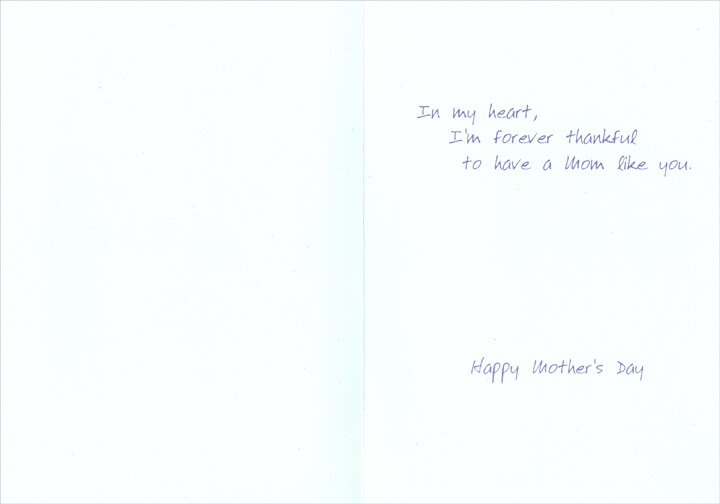 In my heart,
I'm forever thankful
to have a Mom like you.
Happy Mother's Day